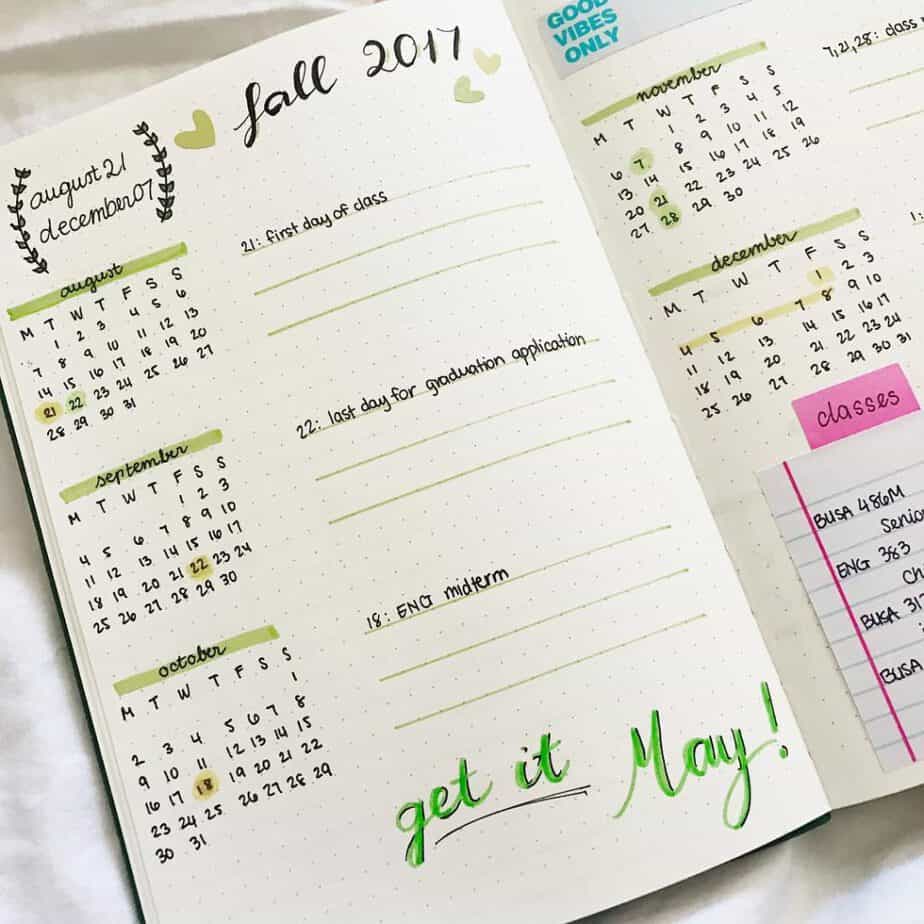 fall 2017
august 21
december 07
august
M T W T F S S
1 2 3 4 5 6
7 8 9 10 11 12 13
14 15 16 17 18 19 20
21 22 23 24 25 26 27
28 29 30 31
21: first day of class
september
M T W T F S S
1 2 3
4 5 6 7 8 9 10
11 12 13 14 15 16 17
18 19 20 21 22 23 24
25 26 27 28 29 30
22: last day for graduation application
october
M T W T F S S
1
2 3 4 5 6 7 8
9 10 11 12 13 14 15
16 17 18 19 20 21 22
23 24 25 26 27 28 29
30 31
18: ENG midterm
get it May!
GOOD
VIBES
ONLY
november
M T W T F S S
1 2 3 4 5
6 7 8 9 10 11 12
13 14 15 16 17 18 19
20 21 22 23 24 25 26
27 28 29 30
7, 21, 28: class
december
M T W T F S S
1 2 3
4 5 6 7 8 9 10
11 12 13 14 15 16 17
18 19 20 21 22 23 24
25 26 27 28 29 30 31
classes
BUSA 486M
Senior
ENG 383
Ch
BUSA 317
BUSA